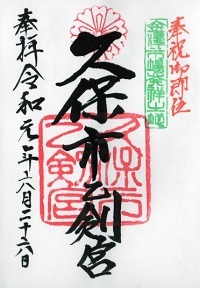 奉祝御即位
久保市乙剣宮
久保市
乙剣宮
奉拝令和元年六月二十六日